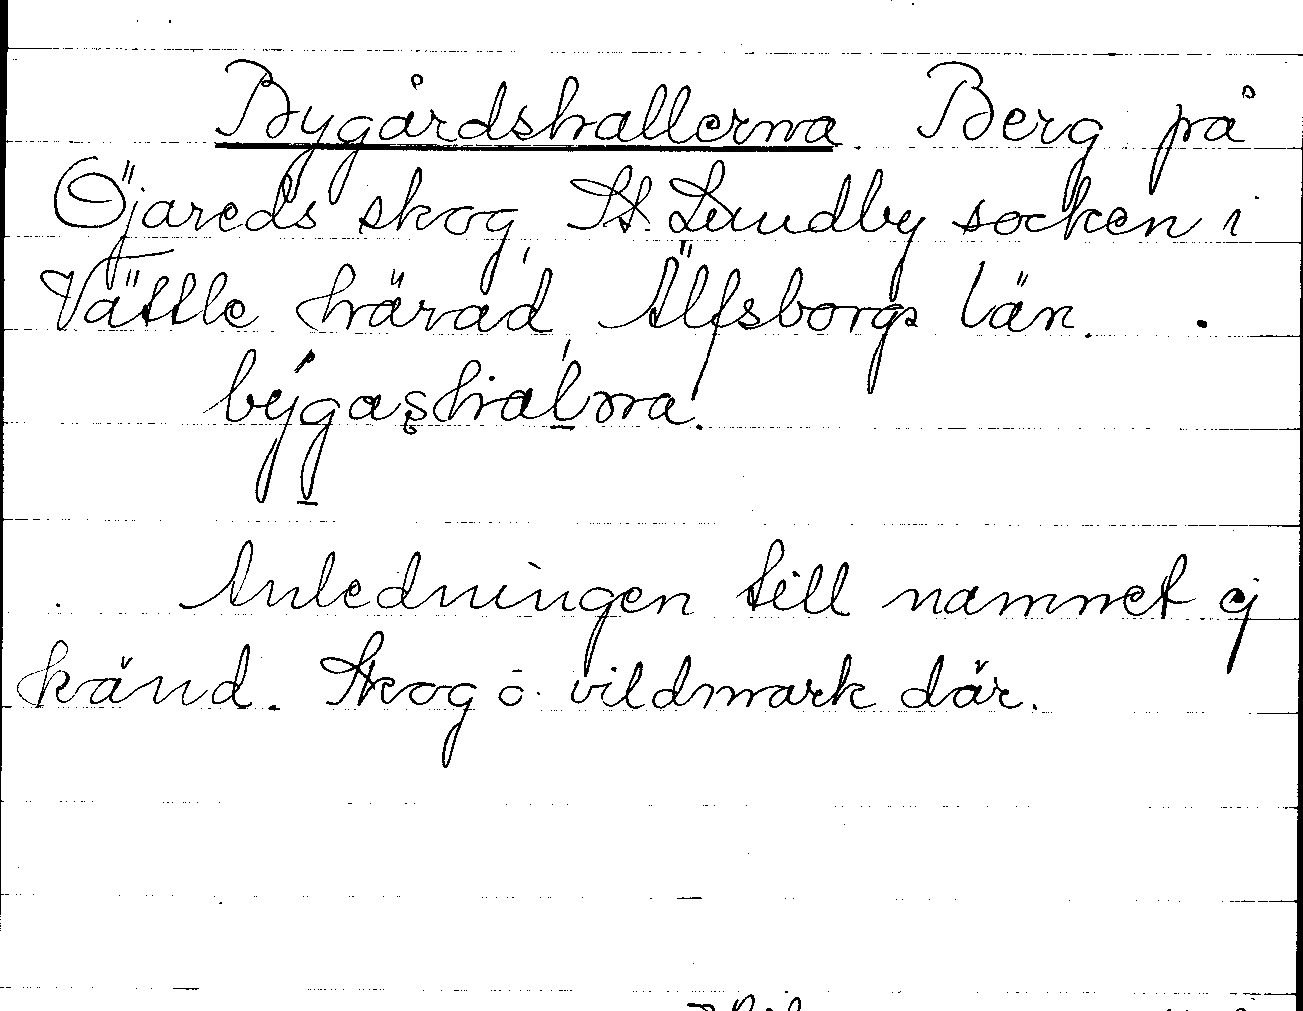 Bygårdshallerna. Berg på
Öjareds skog, St. Lundby socken i
Vättle härad, Älfsborgs län.
býgas̨hal̲na.
Anledningen till namnet ej
känd. Skog o. vildmark där.